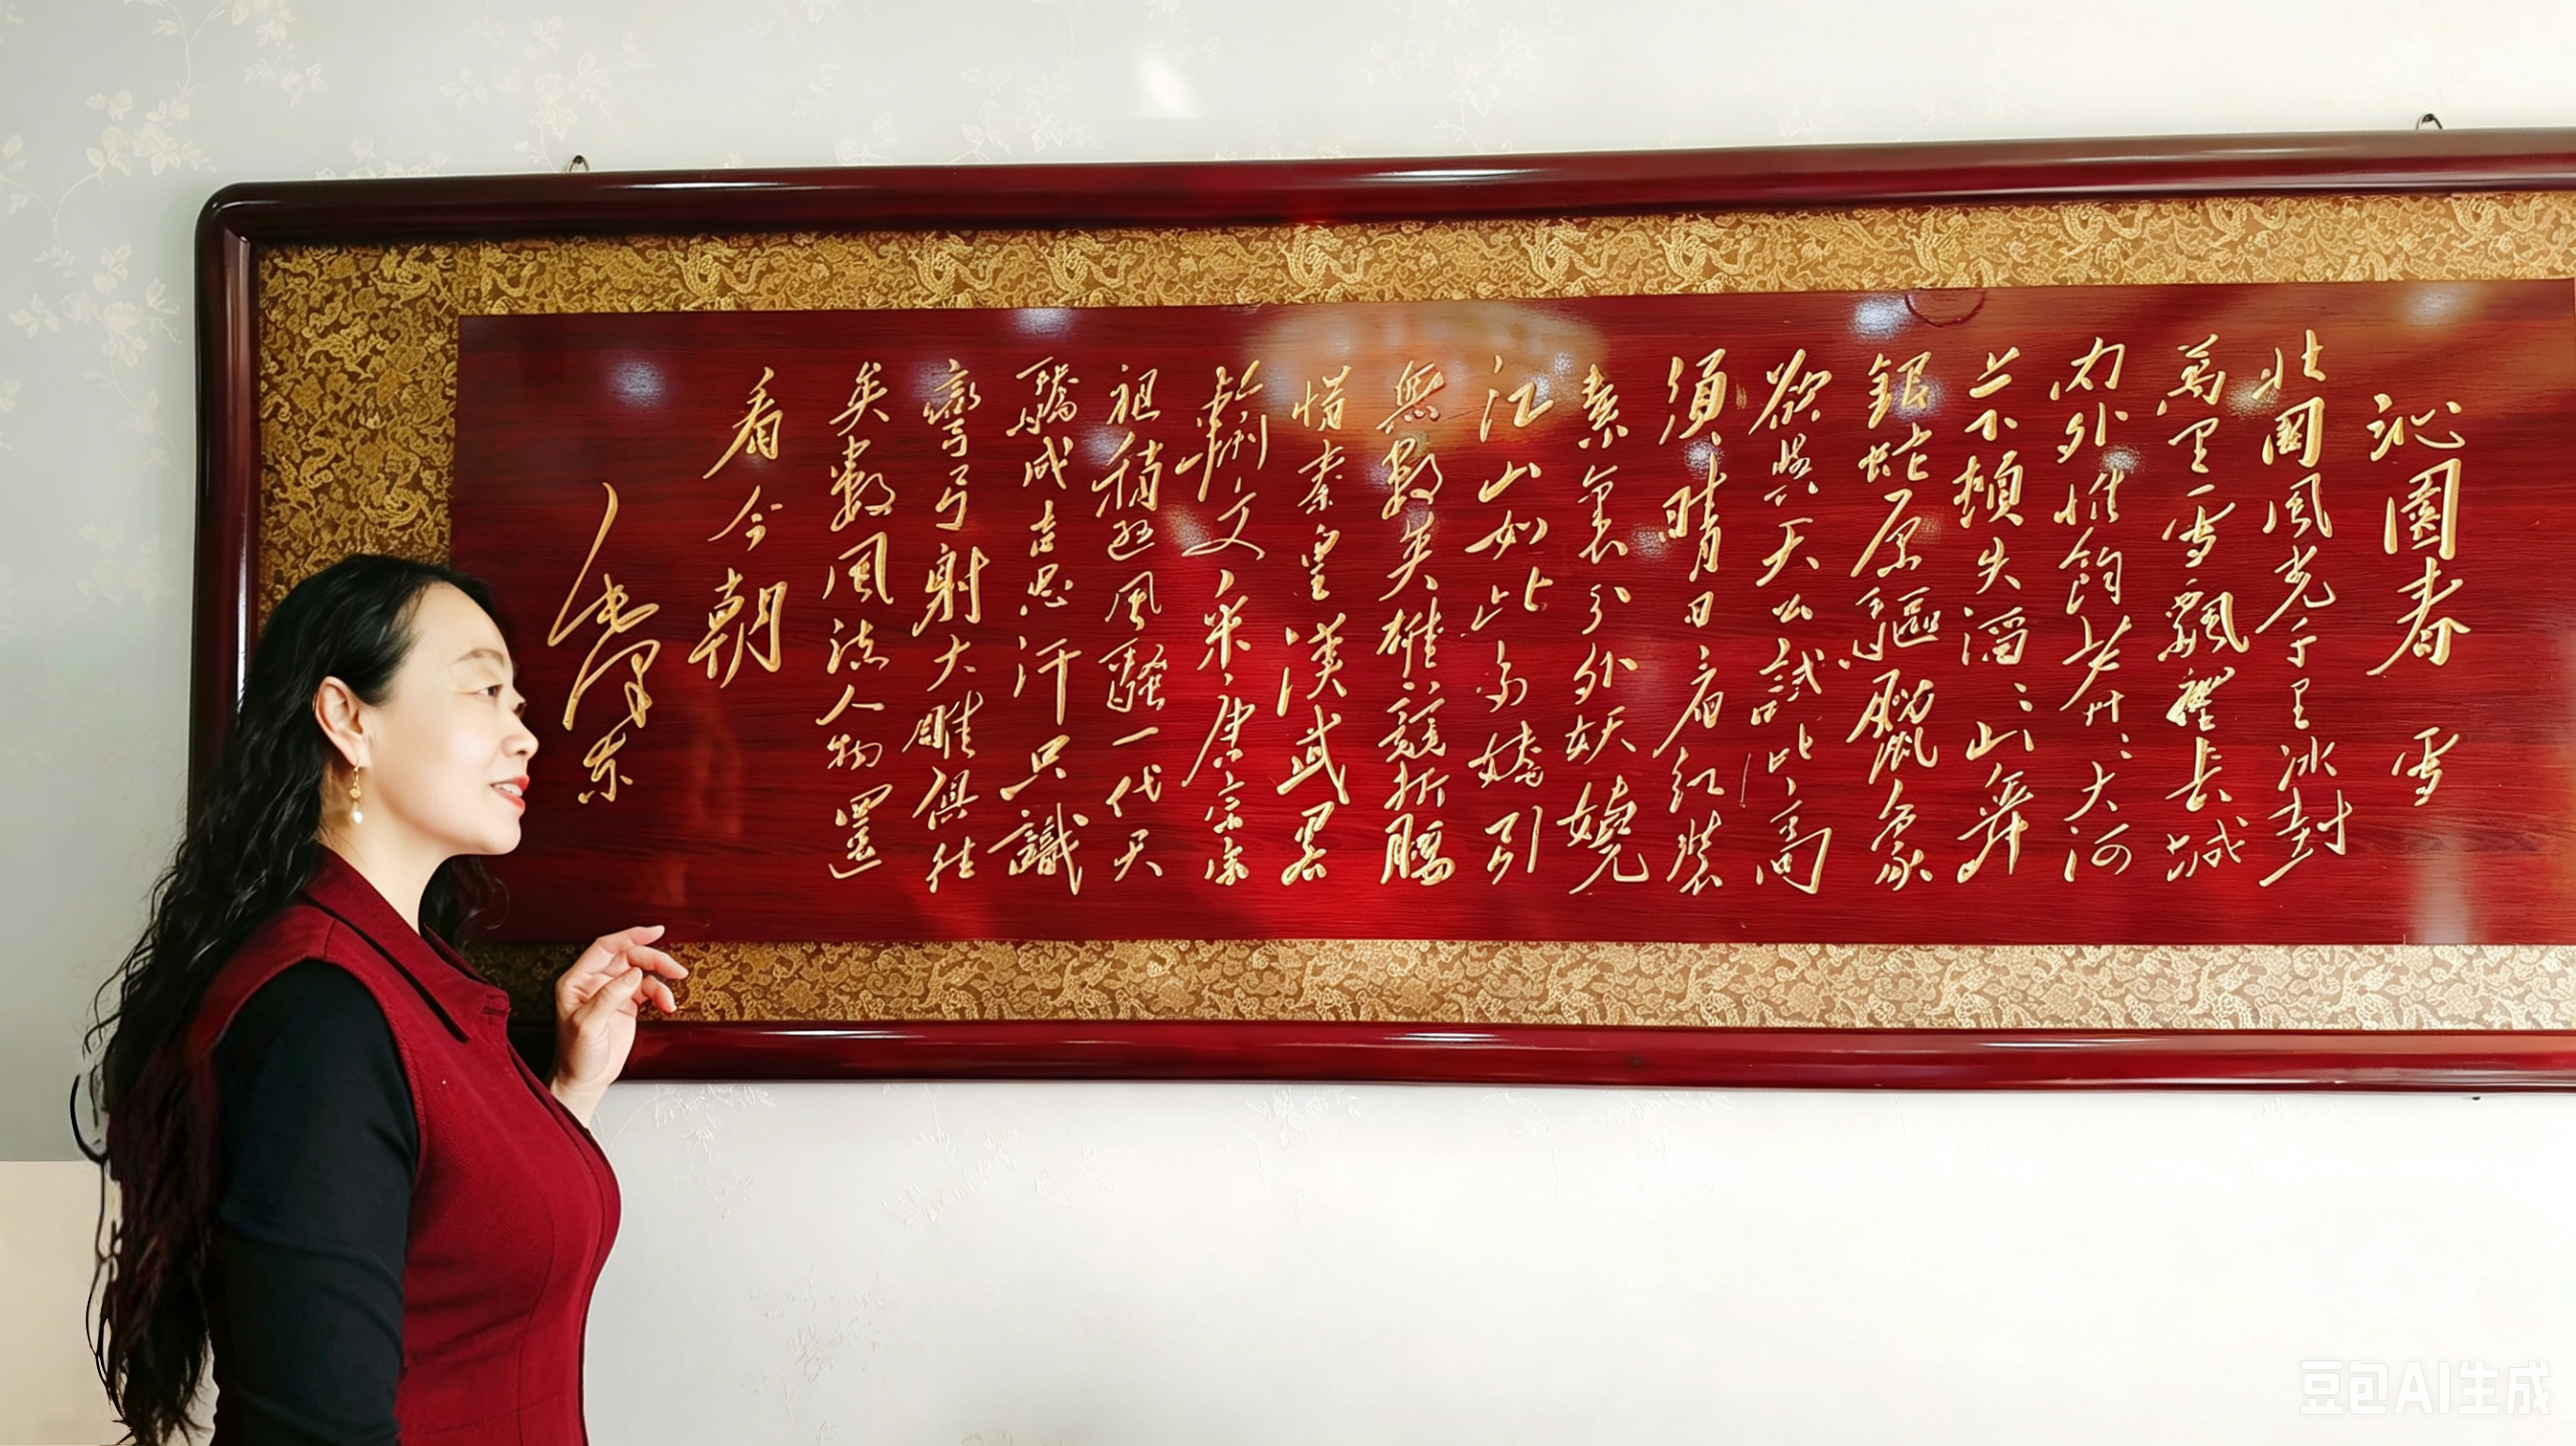 沁園春 雪
北國風光千里冰封
萬里雪飄望長城
内外惟餘莽々大河
上下頓失滔々山舞
銀蛇原驅臘象
欲與天公試比高
須晴日看紅裝
素裹分外妖嬈
江山如此多嬌引
無數英雄競折腰
惜秦皇漢武畧
輸文采唐宗宋
祖稍遜風騷一代天
驕成吉思汗只識
彎弓射大雕俱往
矣數風流人物還
看今朝
毛澤东
豆包AI生成